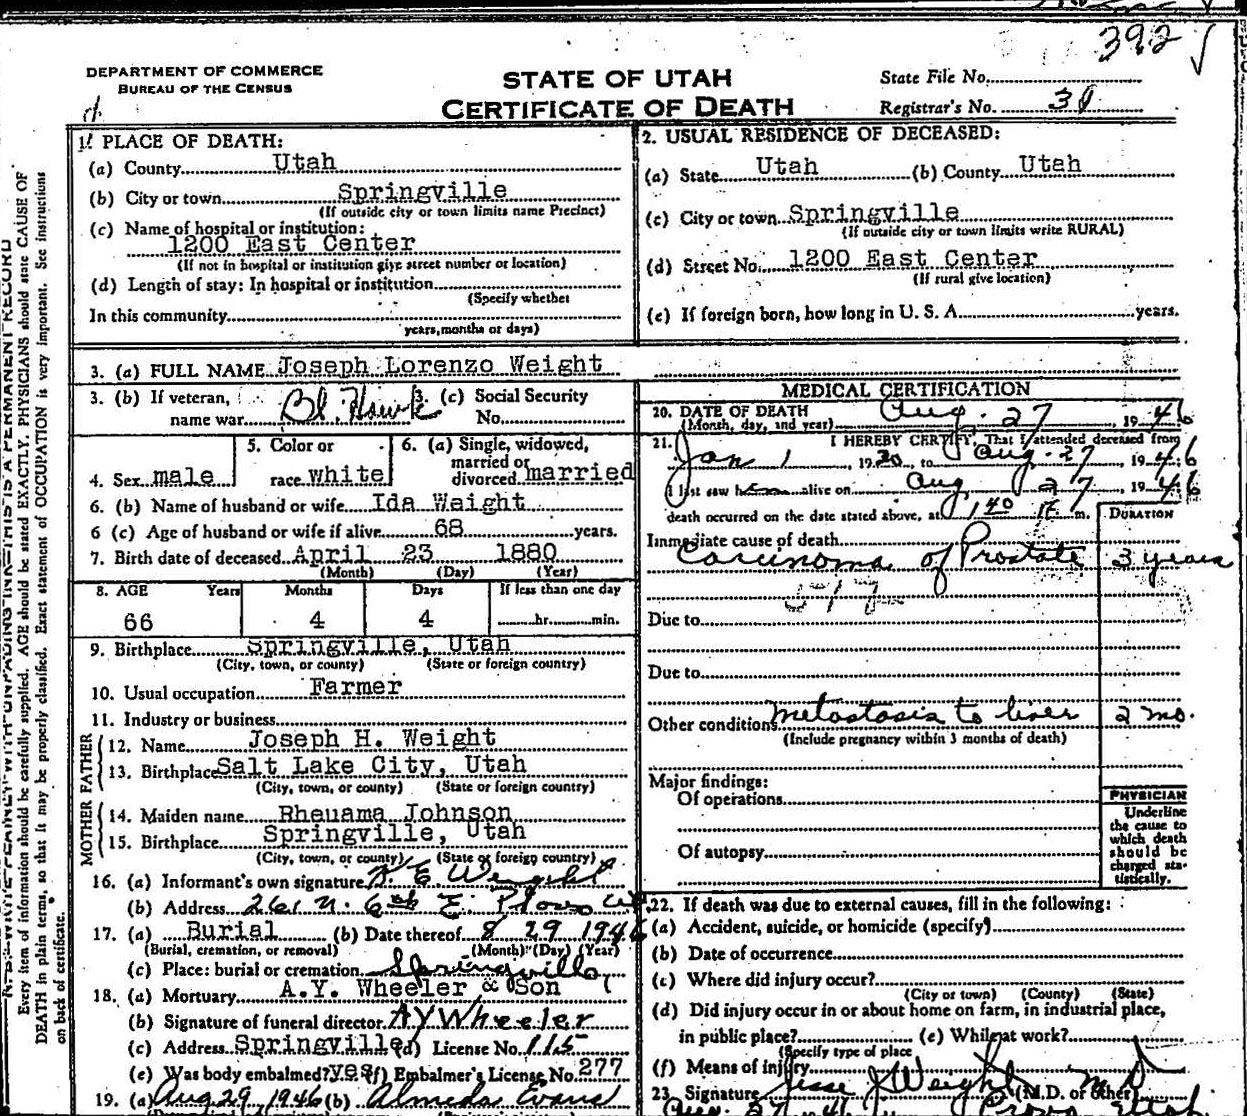 392 √
DEPARTMENT OF COMMERCE
BUREAU OF THE CENSUS
STATE OF UTAH
CERTIFICATE OF DEATH
State File No.
Registrar's No. 31
Every item of information should be carefully supplied. AGE should be stated EXACTLY. PHYSICIANS should state CAUSE OF
DEATH in plain terms, so that it may be properly classified. Exact statement of OCCUPATION is very important. See instructions
on back of certificate.
1. PLACE OF DEATH:
(a) County Utah
(b) City or town Springville
(If outside city or town limits name Precinct)
(c) Name of hospital or institution:
1200 East Center
(If not in hospital or institution give street number or location)
(d) Length of stay: In hospital or institution
(Specify whether
In this community
years, months or days)
2. USUAL RESIDENCE OF DECEASED:
(a) State Utah (b) County Utah
(c) City or town Springville
(If outside city or town limits write RURAL)
(d) Street No. 1200 East Center
(If rural give location)
(e) If foreign born, how long in U. S. A. years.
3. (a) FULL NAME Joseph Lorenzo Weight
3. (b) If veteran, name war Bl Hawk 3. (c) Social Security No.
4. Sex male 5. Color or race white 6. (a) Single, widowed, married or divorced married
6. (b) Name of husband or wife Ida Weight
6 (c) Age of husband or wife if alive 68 years.
7. Birth date of deceased April 23 1880
(Month) (Day) (Year)
8. AGE Years Months Days If less than one day
66 4 4 hr. min.
9. Birthplace Springville, Utah
(City, town, or county) (State or foreign country)
10. Usual occupation Farmer
11. Industry or business
FATHER
12. Name Joseph H. Weight
13. Birthplace Salt Lake City, Utah
(City, town, or county) (State or foreign country)
MOTHER
14. Maiden name Rheuama Johnson
15. Birthplace Springville, Utah
(City, town, or county) (State or foreign country)
16. (a) Informant's own signature K. E. Weight
(b) Address 261 N. 6th E. Provo Ut.
17. (a) Burial (b) Date thereof 8 29 1946
(Burial, cremation, or removal) (Month) (Day) (Year)
(c) Place: burial or cremation Springville
18. (a) Mortuary A.Y. Wheeler & Son
(b) Signature of funeral director AYWheeler
(c) Address Springville (d) License No. 115
(e) Was body embalmed? yes (f) Embalmer's License No. 277
19. (a) Aug 29, 1946 (b) Almeda Evans
MEDICAL CERTIFICATION
20. DATE OF DEATH Aug. 27 1946
(Month, day, and year)
21. I HEREBY CERTIFY, That I attended deceased from
Jan 1, 1930, to Aug. 27, 1946
I last saw him alive on Aug 27, 1946
death occurred on the date stated above, at 1 40 m.
DURATION
Immediate cause of death
Carcinoma of Prostate 3 years
Due to
Due to
Other conditions metastasis to liver 2 mo.
(Include pregnancy within 3 months of death)
Major findings:
Of operations
Of autopsy
PHYSICIAN
Underline
the cause to
which death
should be
charged sta-
tistically.
22. If death was due to external causes, fill in the following:
(a) Accident, suicide, or homicide (specify)
(b) Date of occurrence
(c) Where did injury occur?
(City or town) (County) (State)
(d) Did injury occur in or about home on farm, in industrial place,
in public place? (e) While at work?
(Specify type of place
(f) Means of injury
23. Signature Jesse J Weight M D (M.D. or other)
Aug. 27 Provo Utah